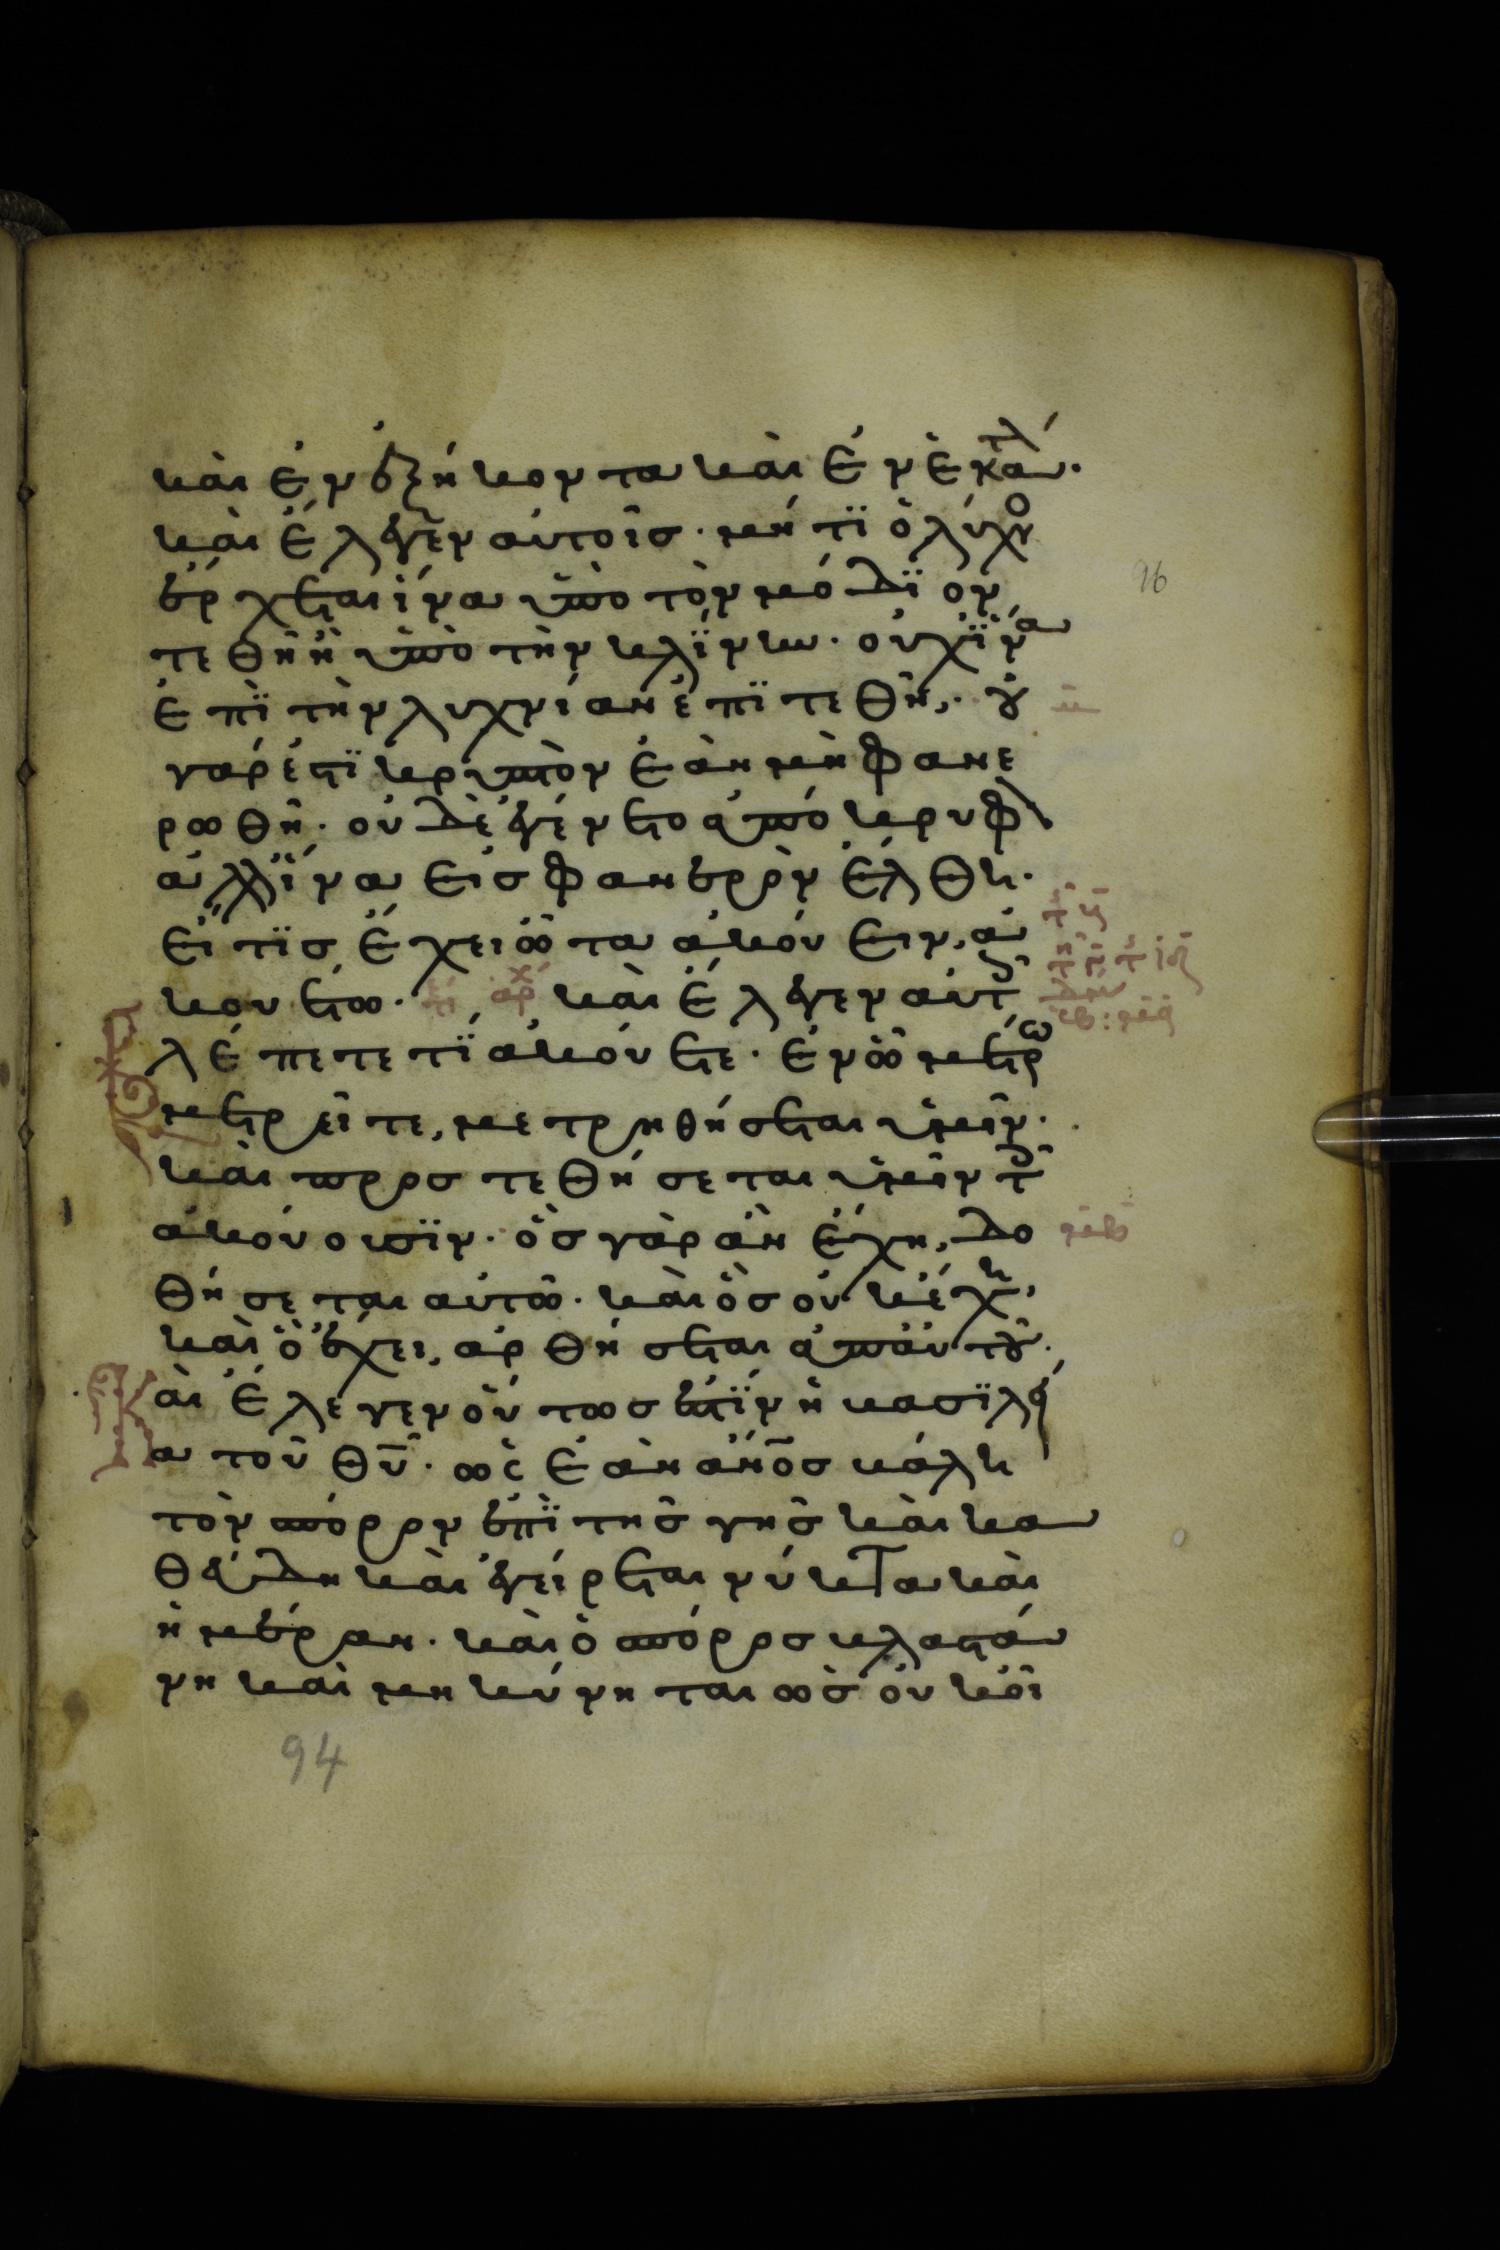 καὶ ἐν ἑξήκοντα καὶ ἐν ἑκατό.
καὶ ἔλεγεν αὐτοῖς· μήτϊ ὁ λύχνο
ἔρχεται ἵνα ὑπὸ τὸν μόδϊον
τεθῆ ἢ ὑπὸ τὴν κλίνην· οὐχ ἵνα
ἐπὶ τὴν λυχνίαν ἐπιτεθῆ,· οὐ
γάρ ἐστϊ κρυπτὸν ἐὰν μὴ φανε
ρωθῆ· οὐδὲ ἐγένετο ἀπόκρυφ
ἀλλ' ἵνα εἰς φανερὸν ἔλθη·
εἴ τϊς ἔχει ὦτα ἀκούειν, ἀ
κουέτω· καὶ ἔλεγεν αὐτοῖς
λέπετε τϊ ἀκούετε· ἐν ὧ μέτρω
μετρεῖτε, μετρηθήσεται ὑμῖν·
καὶ προστεθήσεται ὑμῖν τοῖς
ἀκούουσϊν· ὃς γὰρ ἂν ἔχη, δο
θήσεται αὐτῶ· καὶ ὃς οὐκ ἔχει,
καὶ ὃ ἔχει, ἀρθήσεται ἀπ' αὐτοῦ·
αι ἔλεγεν οὕτως ἐστϊν ἡ βασϊλεί
α τοῦ θυ̅· ὡς ἐὰν ἄνο̅ς βάλη
τὸν σπόρον ἐπὶ τῆς γῆς καὶ κα
θεύδη καὶ ἐγείρεται νύκτα καὶ
ἡμέραν· καὶ ὁ σπόρος βλαστά
νη καὶ μηκύνηται ὡς οὐκ οἶ
96
94